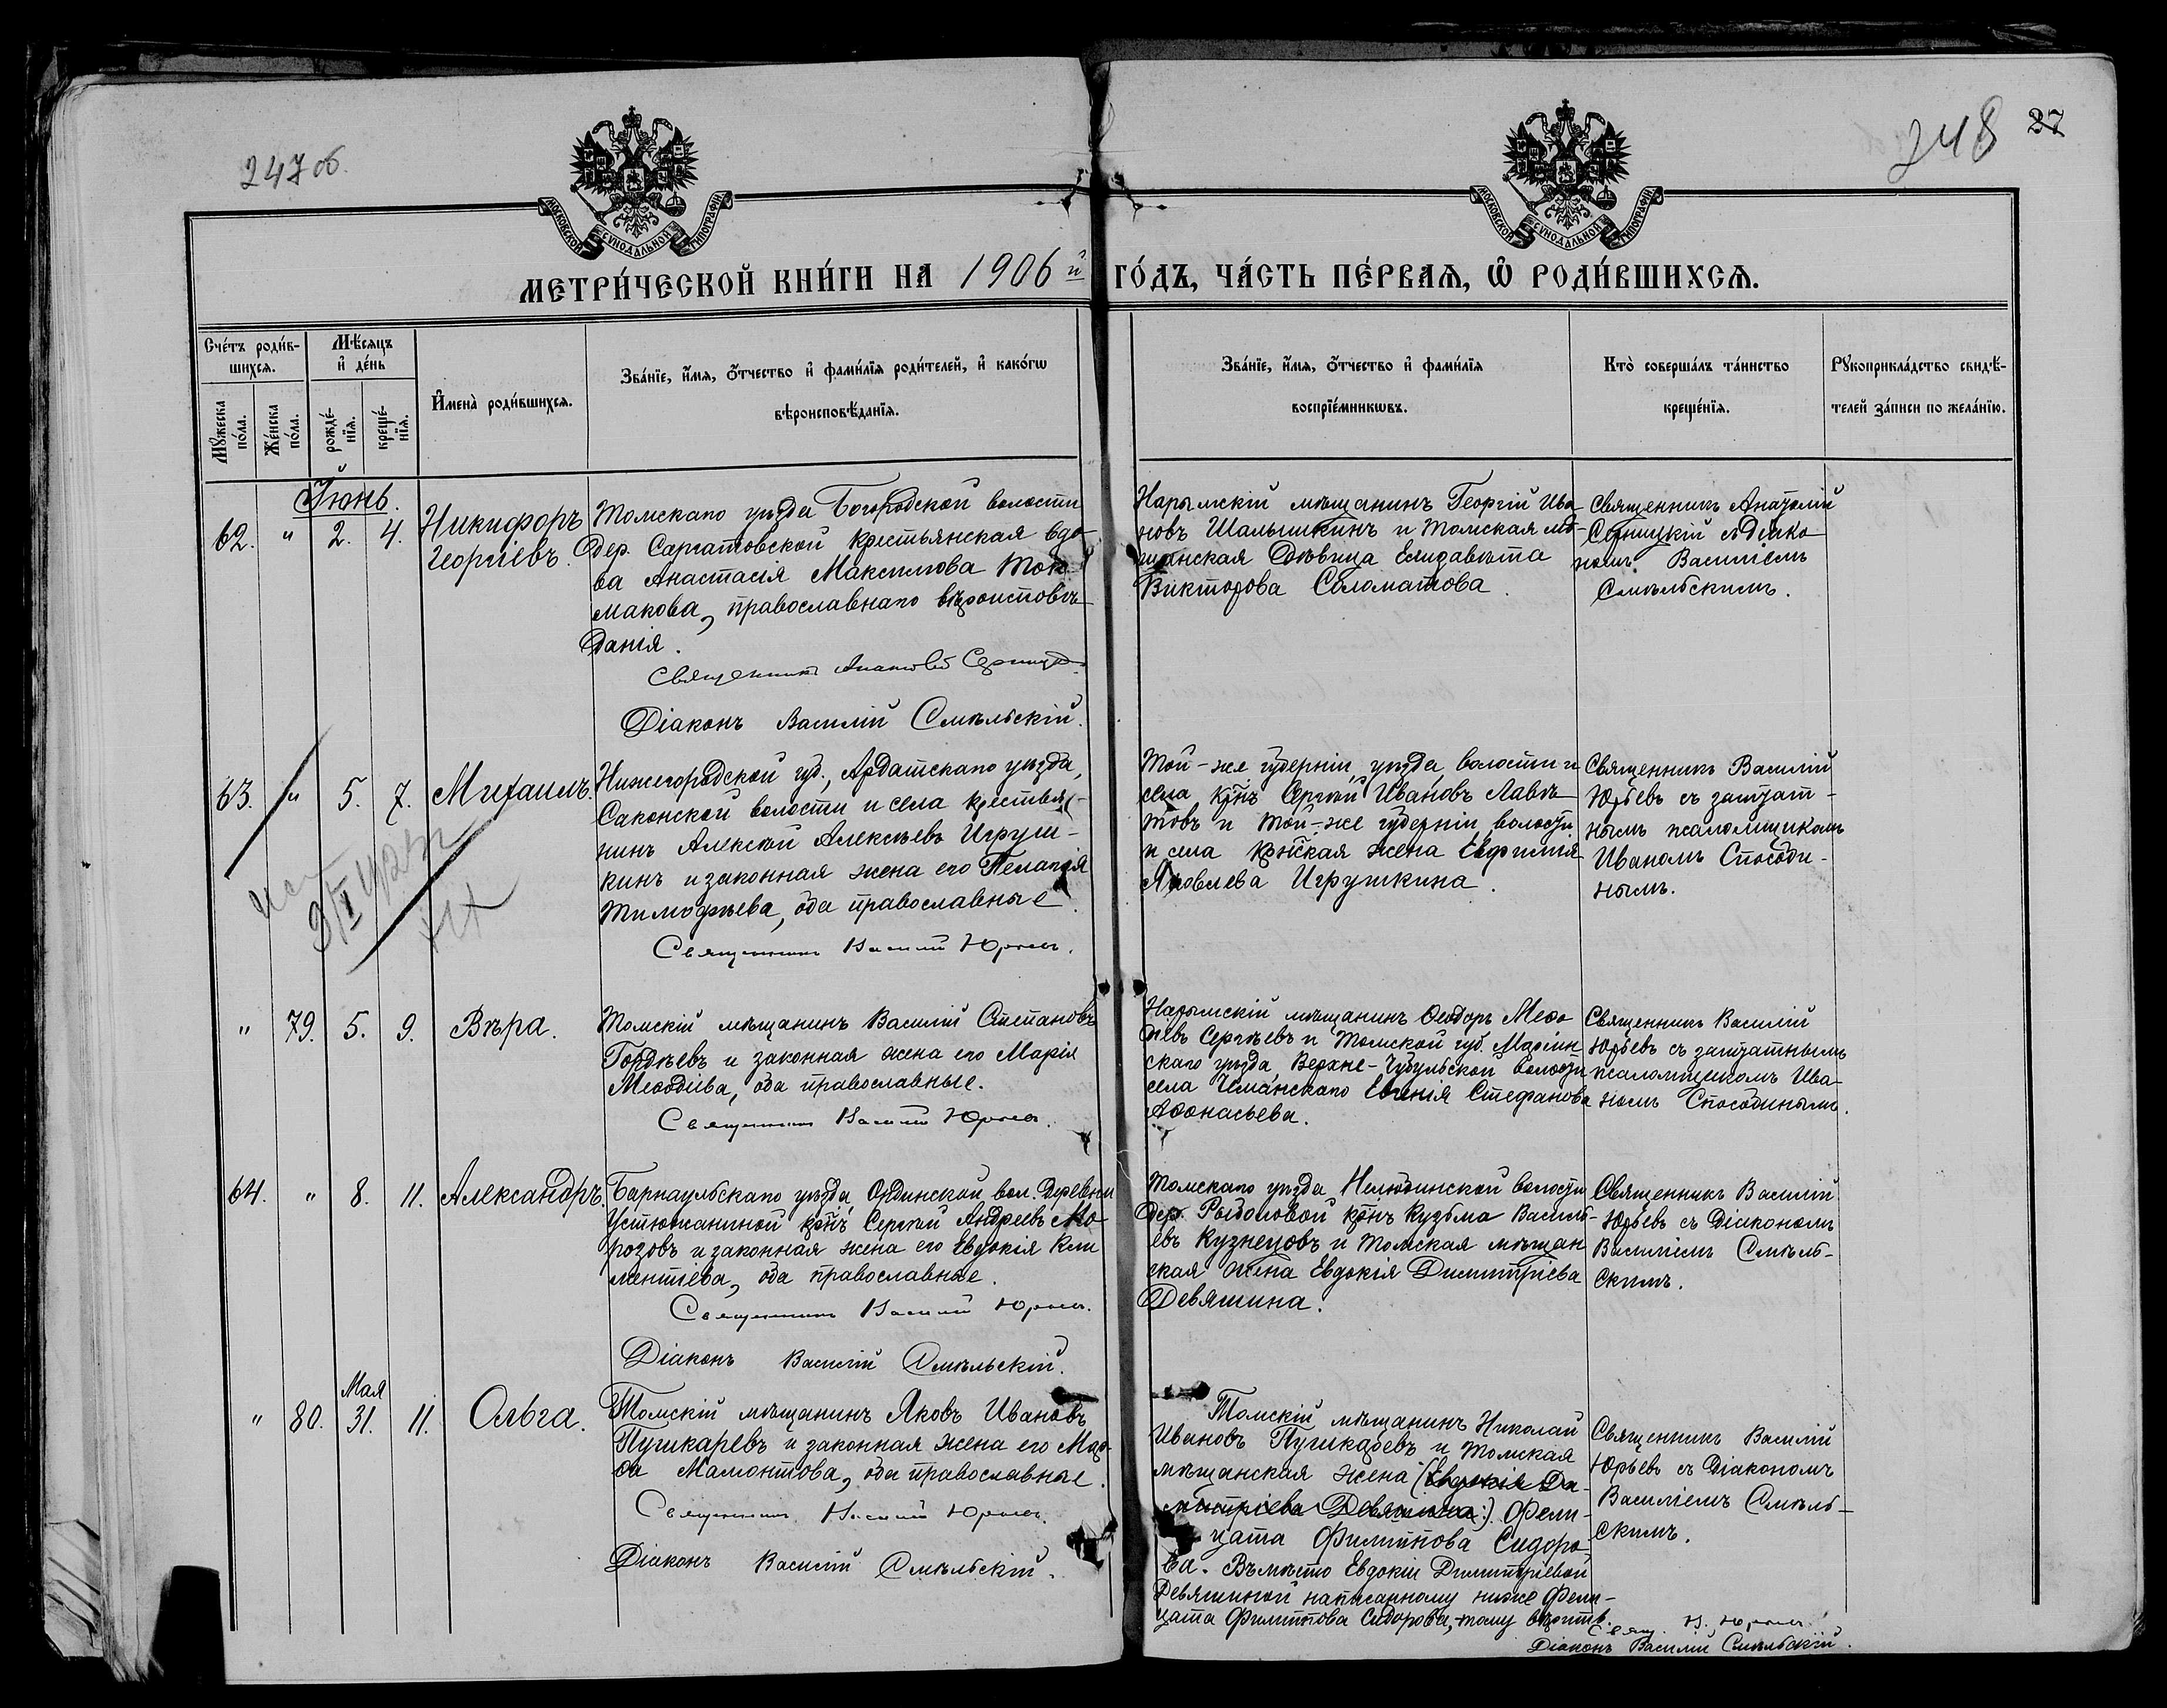 247 об.
248
27
МОСКОВСКОЙ СУНОДАЛЬНОЙ ТИПОГРАФІИ
МОСКОВСКОЙ СУНОДАЛЬНОЙ ТИПОГРАФІИ
МЕТРИ́ЧЕСКОЙ КНИ́ГИ НА 1906й ГО́ДЪ, ЧА́СТЬ ПЕ́РВАѦ, Ѡ҆ РОДИ́ВШИХСѦ.
Сче́тъ роди́в-
шихсѧ.
Мѣ́сѧцъ
и҆ де́нь
Мꙋ́жеска
по́ла.
Же́нска
по́ла.
рожде́-
нїѧ.
креще́-
нїѧ.
И҆мена̀ роди́вшихсѧ.
Зва́нїе, и҆́мѧ, ѻ҆́тчество и҆ фами́лїѧ роди́телей, и҆ како́гѡ
вѣроисповѣ́данїѧ.
Зва́нїе, и҆́мѧ, ѻ҆́тчество и҆ фами́лїѧ
воспрїе́мникѡвъ.
Кто̀ соверша́лъ та́инство
креще́нїѧ.
Рꙋкоприкла́дство свидѣ́-
телей за́писи по жела́нїю.
Іюнь.
62. " 2. 4.
Никифоръ
Георгіевъ.
Томскаго уѣзда Богородской волости
дер. Саргатовской крестьянская вдо-
ва Анастасія Максимова Ток-
макова, православнаго вѣроисповѣ-
данія.
Священникъ Анатолій Серницкій
Діаконъ Василій Смѣльскій.
Нарымскій мѣщанинъ Георгій Ива-
новъ Шалышкинъ и томская мѣ-
щанская дѣвица Елизавета
Викторова Саломатова.
Священникъ Анатолій
Серницкій съ діако-
номъ Василіемъ
Смѣльскимъ.
63. " 5. 7. Михаилъ.
Нижегородской губ., Ардатскаго уѣзда,
Саконской волости и села крестья-
нинъ Алексѣй Алексѣевъ Игруш-
кинъ и законная жена его Пелагія
Тимофѣева, оба православные
Священникъ Василій Юрьевъ.
Той-же губерніи, уѣзда, волости и
села кр̃нъ Сергѣй Ивановъ Лавре-
товъ и той-же губерніи волости
и села кр̃нская жена Евфимія
Яковлева Игрушкина.
Священникъ Василій
Юрьевъ съ заштат-
нымъ псаломщикомъ
Иваномъ Способи-
нымъ.
" 79. 5. 9. Вѣра.
Томскій мѣщанинъ Василій Степановъ
Гордѣевъ и законная жена его Марія
Меѳодіева, оба православные.
Священникъ Василій Юрьевъ.
Нарымскій мѣщанинъ Ѳеодоръ Меѳо-
діевъ Сергѣевъ и Томской губ. Маріин-
скаго уѣзда, Верхне-Чебульской волости
села Чеманскаго Евгенія Стефанова
Аѳонасьева.
Священникъ Василій
Юрьевъ съ заштатнымъ
псаломщикомъ Ива-
номъ Способинымъ.
64. " 8. 11. Александръ.
Барнаульскаго уѣзда, Ординской вол. деревни
Устюжаниной кр̃нъ Сергѣй Андреевъ Мо-
розовъ и законная жена его Евдокія Кли-
ментіева, оба православные.
Священникъ Василій Юрьевъ.
Діаконъ Василій Смѣльскій.
Томскаго уѣзда Нелюбинской волости
дер. Рыболовой кр̃нъ Кузьма Василь-
евъ Кузнецовъ и томская мѣщан-
ская жена Евдокія Димитріева
Девяшина.
Священникъ Василій
Юрьевъ съ діакономъ
Василіемъ Смѣль-
скимъ.
Мая
" 80. 31. 11. Ольга.
Томскій мѣщанинъ Яковъ Ивановъ
Пушкаревъ и законная жена его Мар-
ѳа Мамонтова, оба православные.
Священникъ Василій Юрьевъ.
Діаконъ Василій Смѣльскій.
Томскій мѣщанинъ Николай
Ивановъ Пушкаревъ и томская
мѣщанская жена (Евдокія Ди-
митріева Девяшина:) Фели-
цата Филиппова Сидоро-
ва. Вѣмѣсто Евдокіи Димитріевой
Девяшиной написанному ниже Фели-
цата Филиппова Сидорова, тому вѣрить.
Свящ. В. Юрьевъ.
Діаконъ Василій Смѣльскій.
Священникъ Василій
Юрьевъ съ діакономъ
Василіемъ Смѣль-
скимъ.